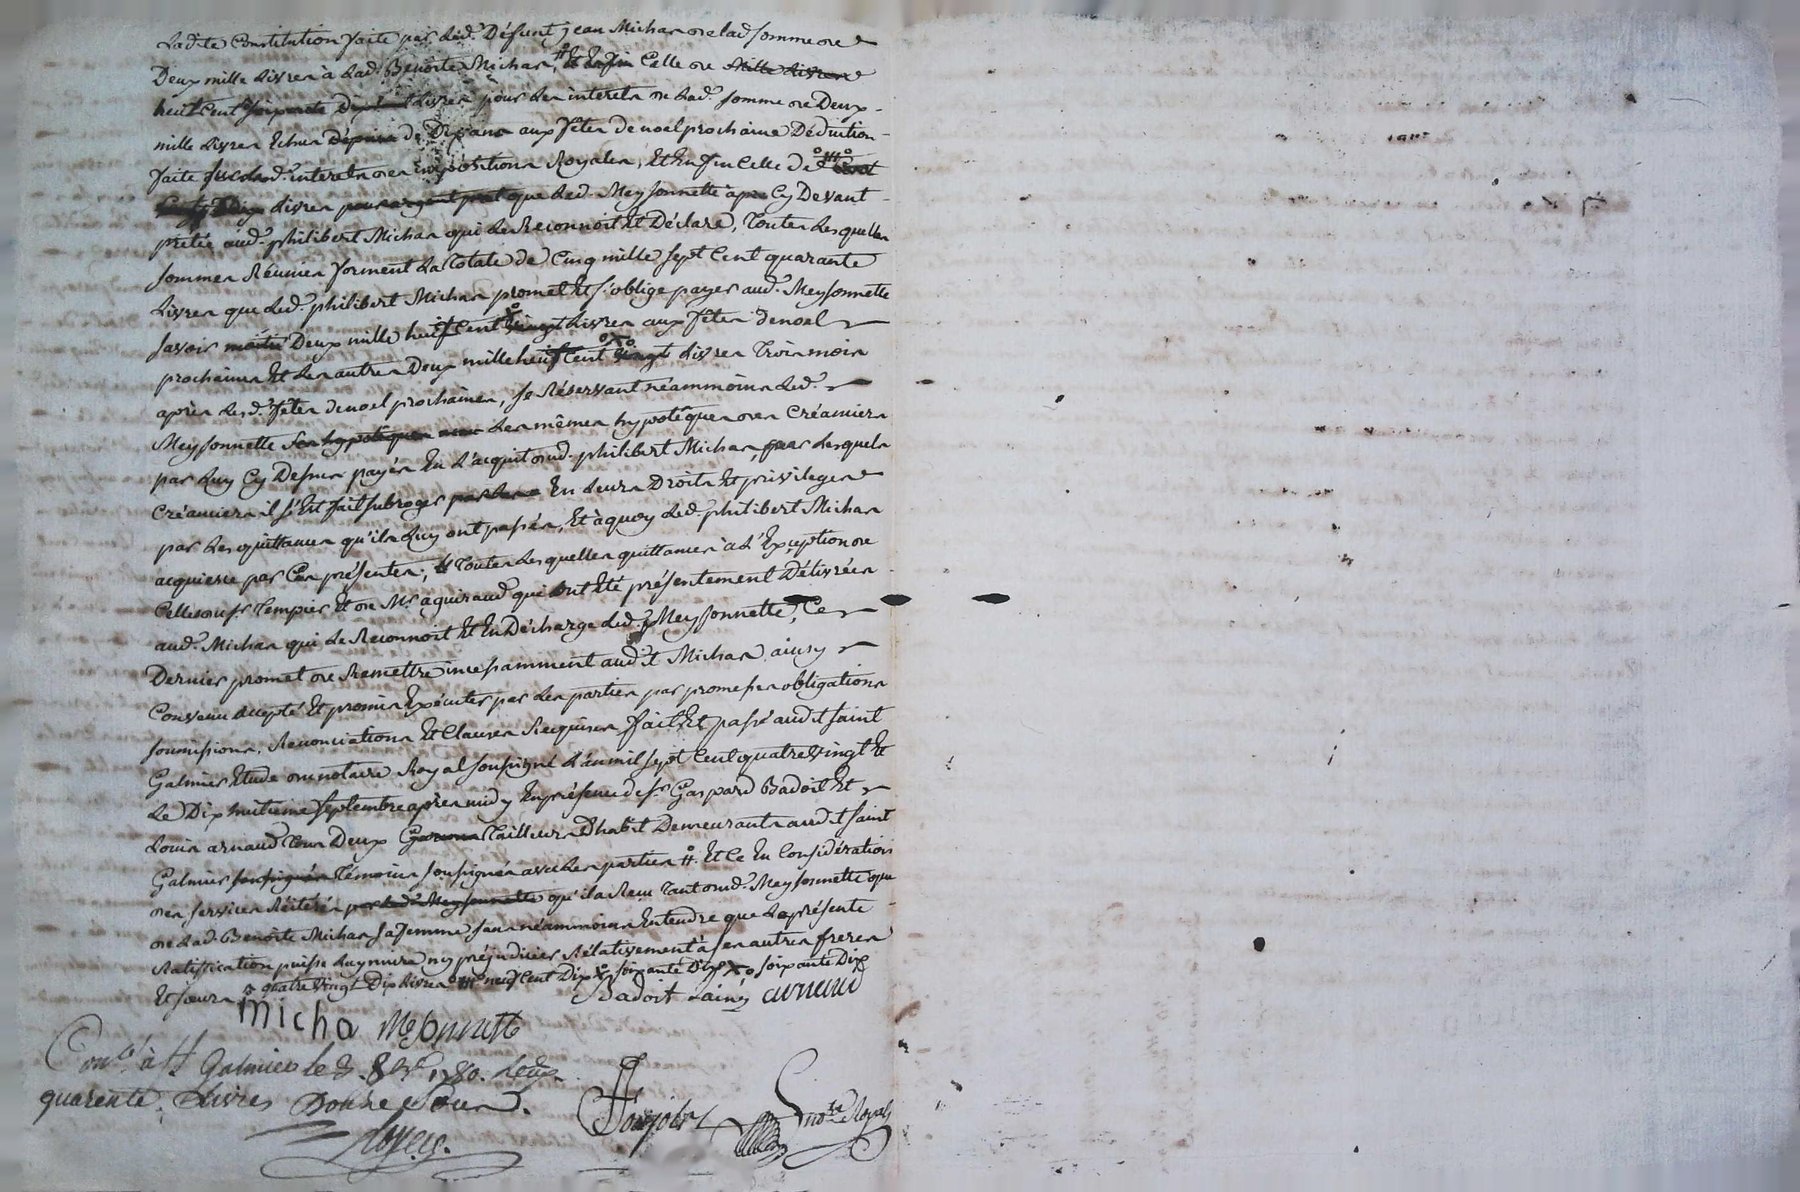 Ladte Constitution faite par Led. Défunt jean Michas de lad somme de
Deux mille Livres à Lad. Benoite Michas, # Et Enfin Celle de mille Livres
huit Cent soixante Livres pour Les interets de Lad. somme de Deux
mille Livres Echus Dépuis de Dix ans aux fêtes de noel prochaine Déduction
faite sur Lesd. interets des impositions Royales, Et Enfin Celle de
Livres que Led. Meysonnette a Cy Devant
pretée aud. philibert Michas qui Le Reconnoit Et Déclare, Toutes Lesquelles
sommes Réunies forment La Totale de Cinq mille sept Cent quarante
Livres que Led. philibert Michas promet Et s'oblige payer aud. Meysonnette
savoir moitié Deux mille huit Cent vingt Livres aux fêtes de noel
prochaines Et Les autres Deux mille huit Cent vingt Livres Trois mois
après Lesd. fêtes de noel prochaines, se Réservant néammoins Led.
Meysonnette Les mêmes hypotêques des Créanciers
par Luy Cy Dessus payés En L'acquit dud. philibert Michas, par Lesquels
Créanciers il s'Est fait subroger En Leurs Droits Et privileges
par Les quittances qu'ils Luy ont passés, Et à quoy Led. philibert Michas
acquiesce par Ces présentes; # Toutes Lesquelles quittances à L'Exception de
Celles du sr. Tempier Et de Mr. aguiraud qui ont Eté présentement Délivrées
aud. Michas qui Le Reconnoit Et En Décharge Led. Meysonnette, Ce
Dernier promet de Remettre incessamment audit Michas ainsy
Convenu accepté Et promis Exécuter par Les parties par promesses obligations
soumissions, Renonciations Et Clauses Requises, fait Et passé audit saint
Galmier Etude du notaire Royal soussigné L'an mil sept Cent quatre vingt Et
Le Dix huitieme septembre après midy En présence de sr. Gaspard Badoil Et
Louis arnaud Tous Deux Tailleurs D'habit Demeurants audit saint
Galmier soussignés Témoins soussignés avec Les parties #. Et Ce En Considération
des services Réiterés par Led. Meysonnette qu'il a Reçu Tant dud. Meysonnette que
de Lad. Benoite Michas sa femme sans néammoins Entendre que La présente
Ratiffication puisse Luy nuire ny préjudicier Rélativement à ses autres freres
Et soeurs quatre vingt Dix Livres neuf Cent Dix X soixante Dix X soixante Dix
Micha Meysonnette Badoit Lainé arnaud
Conlé à St Galmier le 2. 8bre 1780. Reçu
quarente Livres Douze Sous.
not.re Royal